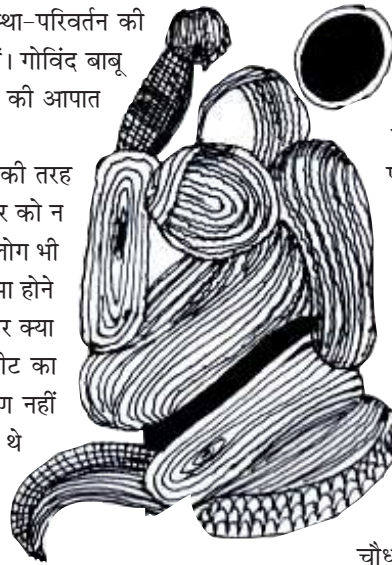 स्था-परिवर्तन की
। गोविंद बाबू
की आपात
की तरह
र को न
लोग भी
मा होने
र क्या
ीट का
ण नहीं
थे
चौध